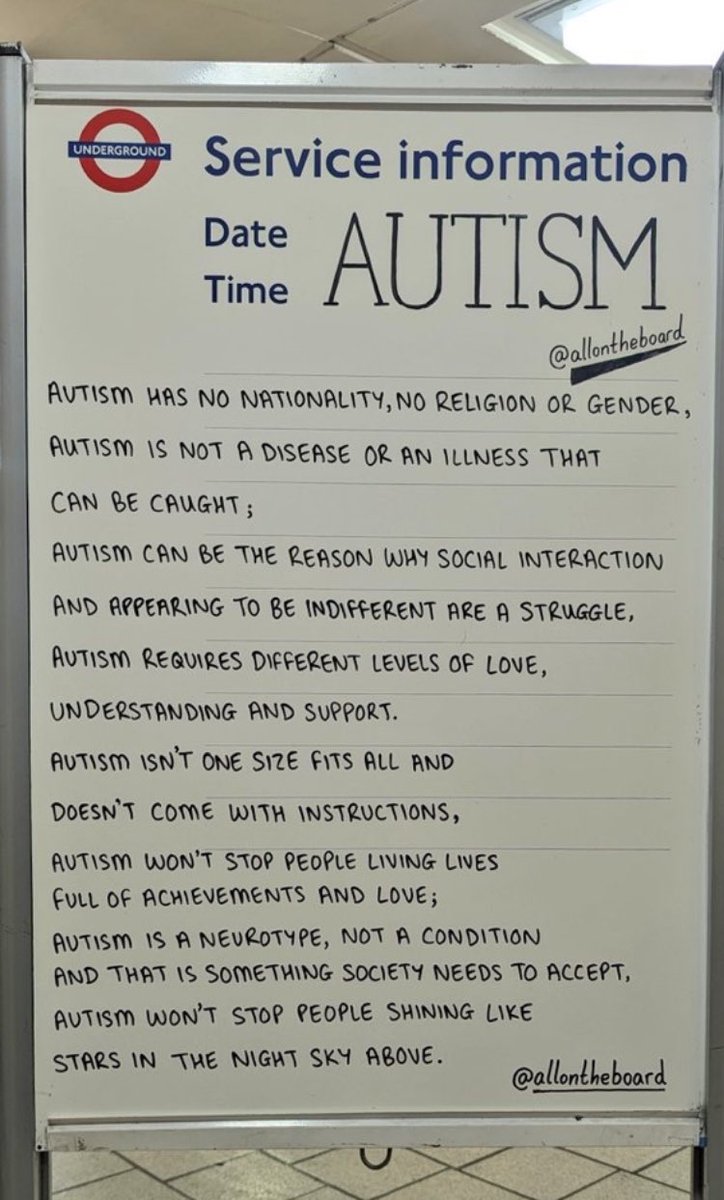 UNDERGROUND
Service information
Date
Time
AUTISM
@allontheboard
AUTISM HAS NO NATIONALITY, NO RELIGION OR GENDER,
AUTISM IS NOT A DISEASE OR AN ILLNESS THAT
CAN BE CAUGHT;
AUTISM CAN BE THE REASON WHY SOCIAL INTERACTION
AND APPEARING TO BE INDIFFERENT ARE A STRUGGLE,
AUTISM REQUIRES DIFFERENT LEVELS OF LOVE,
UNDERSTANDING AND SUPPORT.
AUTISM ISN'T ONE SIZE FITS ALL AND
DOESN'T COME WITH INSTRUCTIONS,
AUTISM WON'T STOP PEOPLE LIVING LIVES
FULL OF ACHIEVEMENTS AND LOVE;
AUTISM IS A NEUROTYPE, NOT A CONDITION
AND THAT IS SOMETHING SOCIETY NEEDS TO ACCEPT,
AUTISM WON'T STOP PEOPLE SHINING LIKE
STARS IN THE NIGHT SKY ABOVE.
@allontheboard